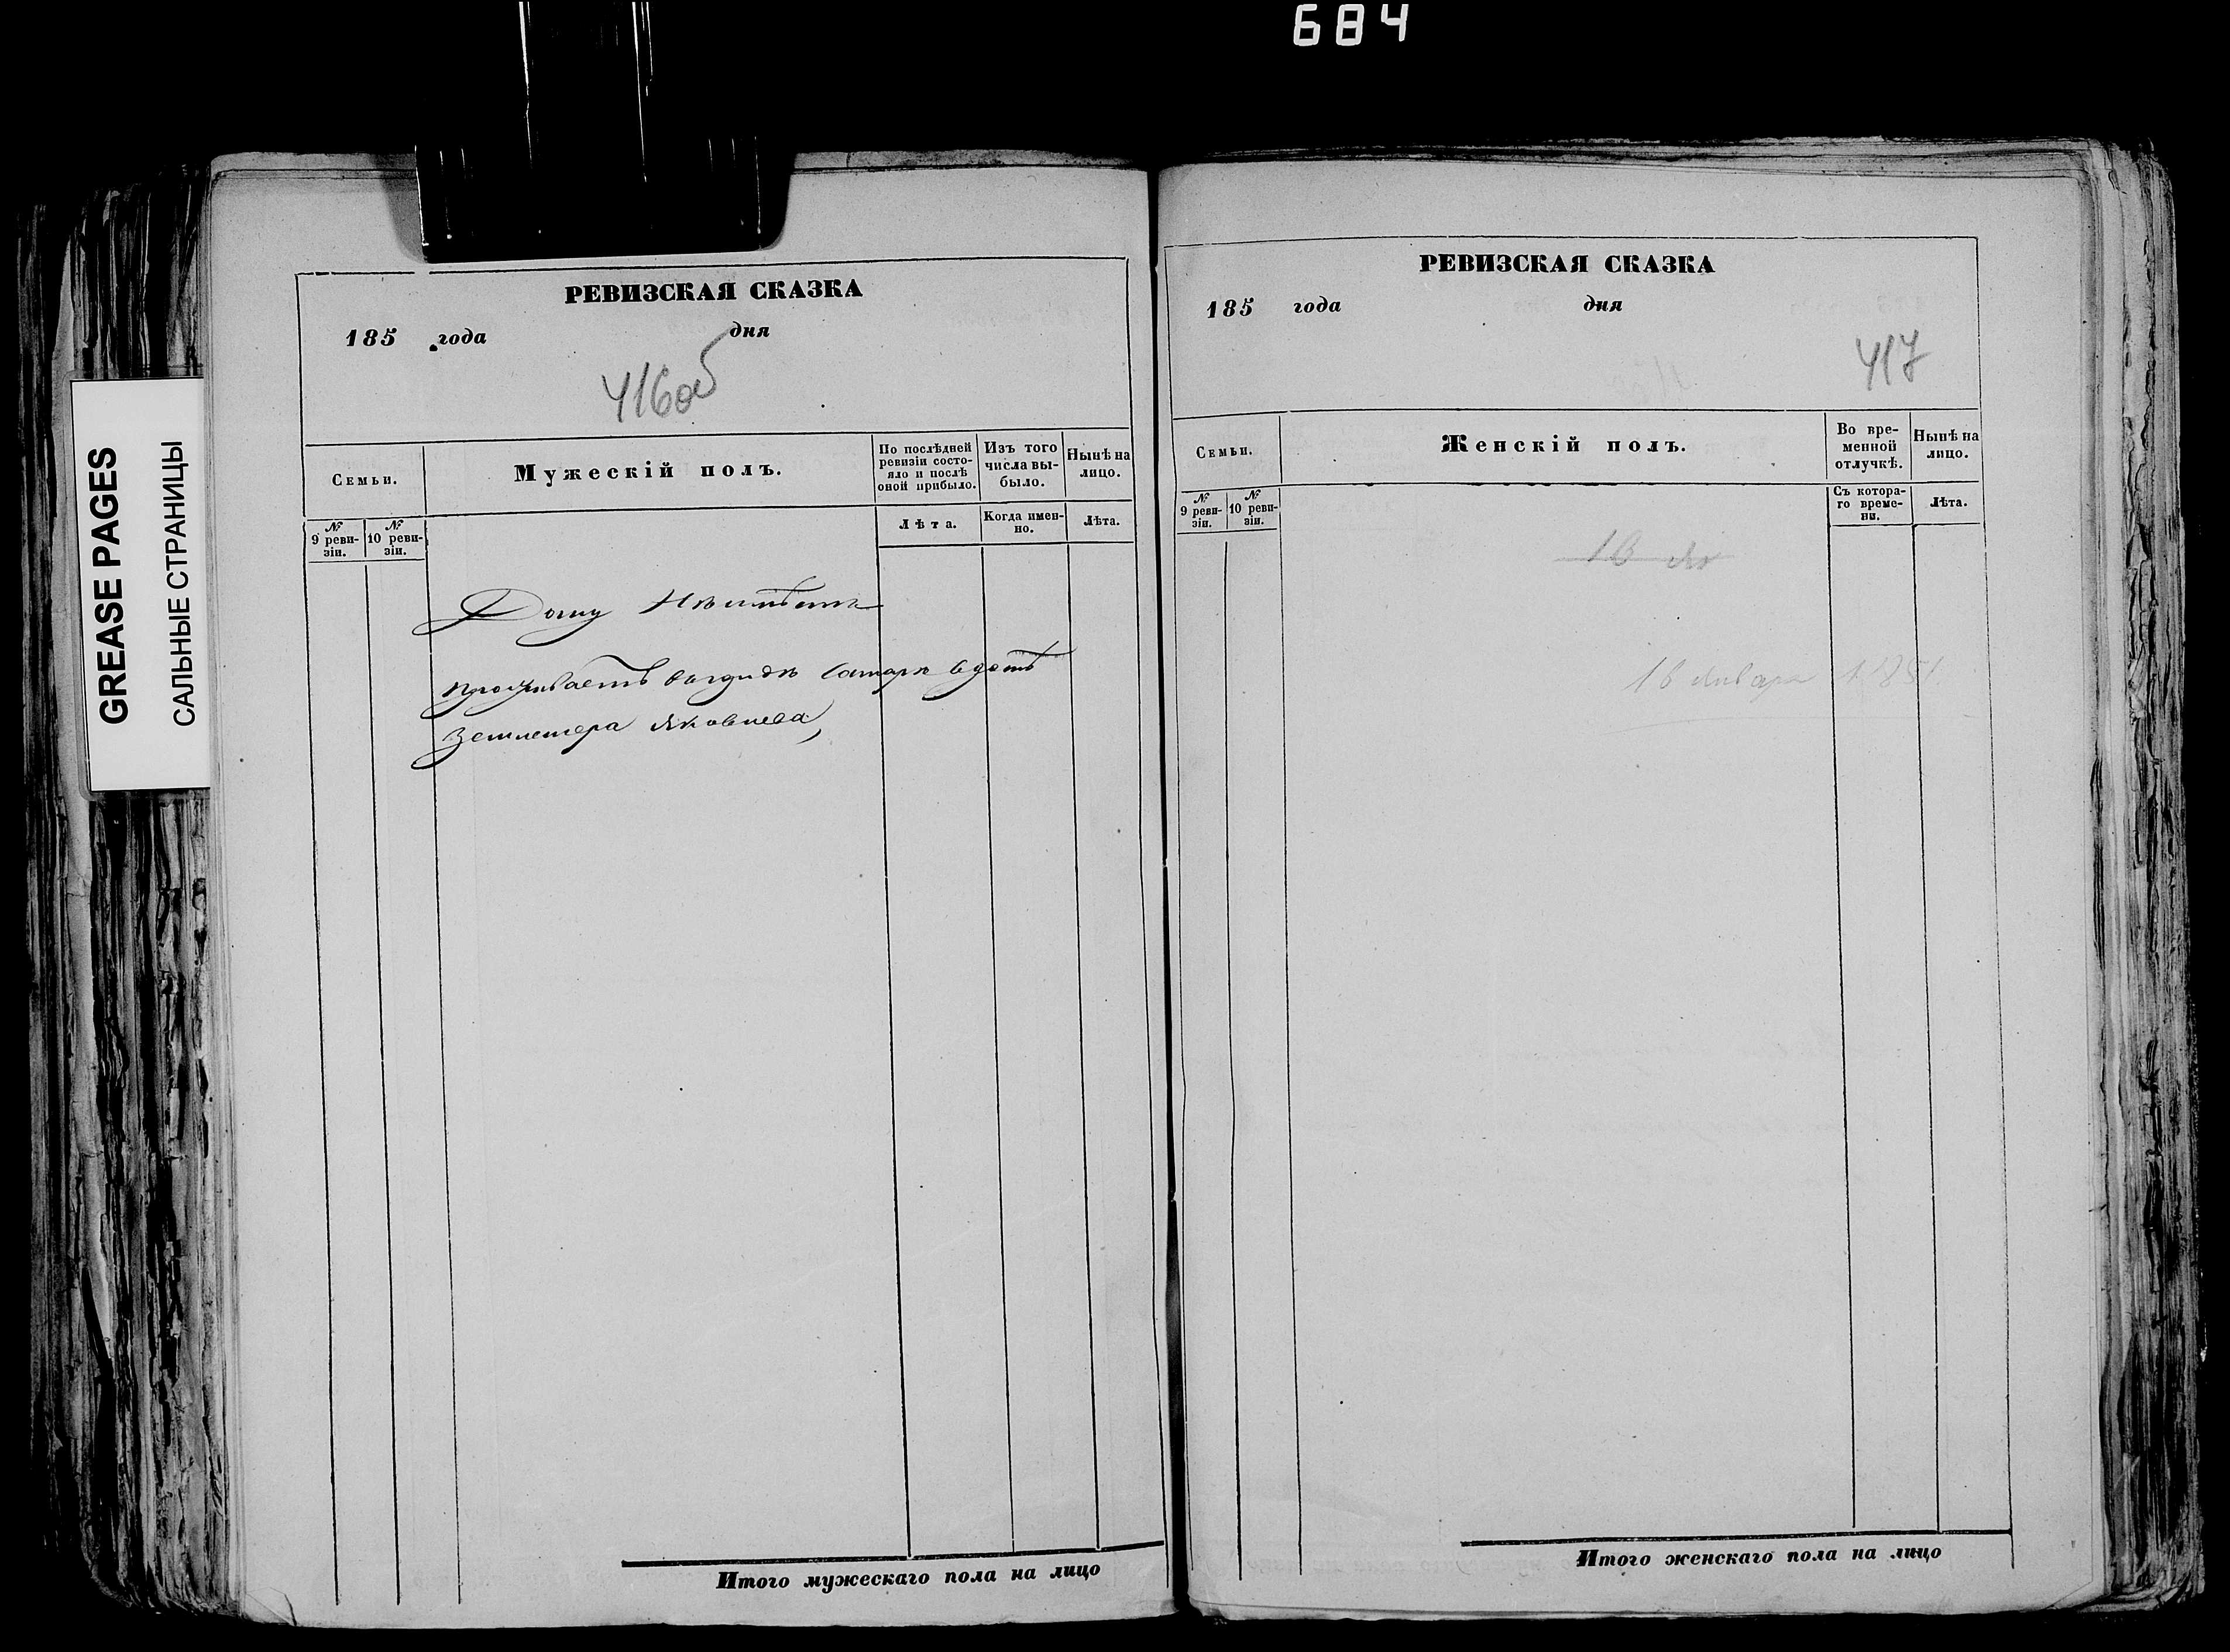 684
GREASE PAGES
САЛЬНЫЕ СТРАНИЦЫ
РЕВИЗСКАЯ СКАЗКА
185 года дня
416об
Семьи.
Мужескій полъ.
По послѣдней ревизіи состо-
яло и послѣ
оной прибыло.
Изъ того
числа вы-
было.
Нынѣ на
лицо.
№
9 реви-
зіи.
№
10 реви-
зіи.
Лѣта.
Когда имен-
но.
Лѣта.
Дому неимѣетъ
проживаетъ вгородѣ Самарѣ вдомѣ
Землемера Яковлева,
Итого мужескаго пола на лицо
РЕВИЗСКАЯ СКАЗКА
185 года дня
417
Семьи.
Женскій полъ.
Во вре-
менной
отлучкѣ.
Нынѣ на
лицо.
№
9 реви-
зіи.
№
10 реви-
зіи.
Съ котора-
го време-
ни.
Лѣта.
16 Ян
16 Января 1851
Итого женскаго пола на лицо